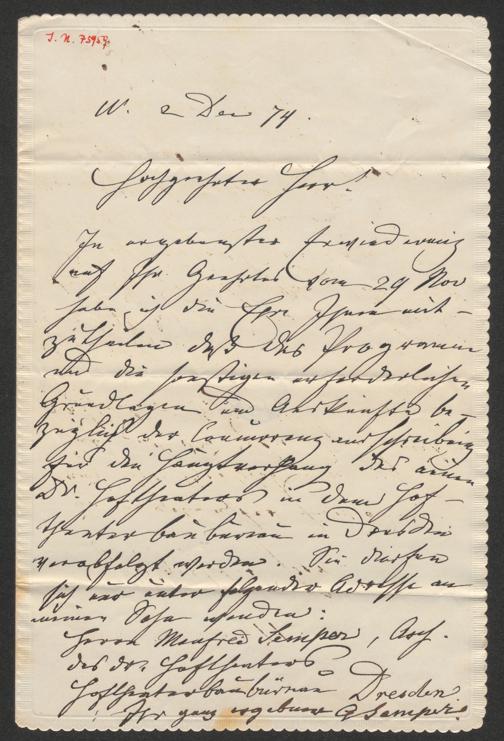 I. N. 75959
W. 2 Dec 74.
Hochgeehrter Herr!
In ergebenster Erwiederung
auf Ihr Geehrtes vom 29 Nov
habe ich die Ehre Ihnen mit-
zutheilen daß das Programm
und die sonstigen erforderlichen
Grundlagen und Auskünfte be-
züglich der Concurrenz ausschreibung
für den Hauptvorhang des neuen
Dr. Hoftheaters in dem Hof-
theaterbaubüreau in Dresden
verabfolgt werden. Sie dürfen
sich nur unter folgender Adresse an
meinen Sohn wenden:
Herrn Manfred Semper, Arch.
des dr. Hoftheaters
Hoftheaterbaubüreau Dresden.
Ihr ganz ergebener G Semper.